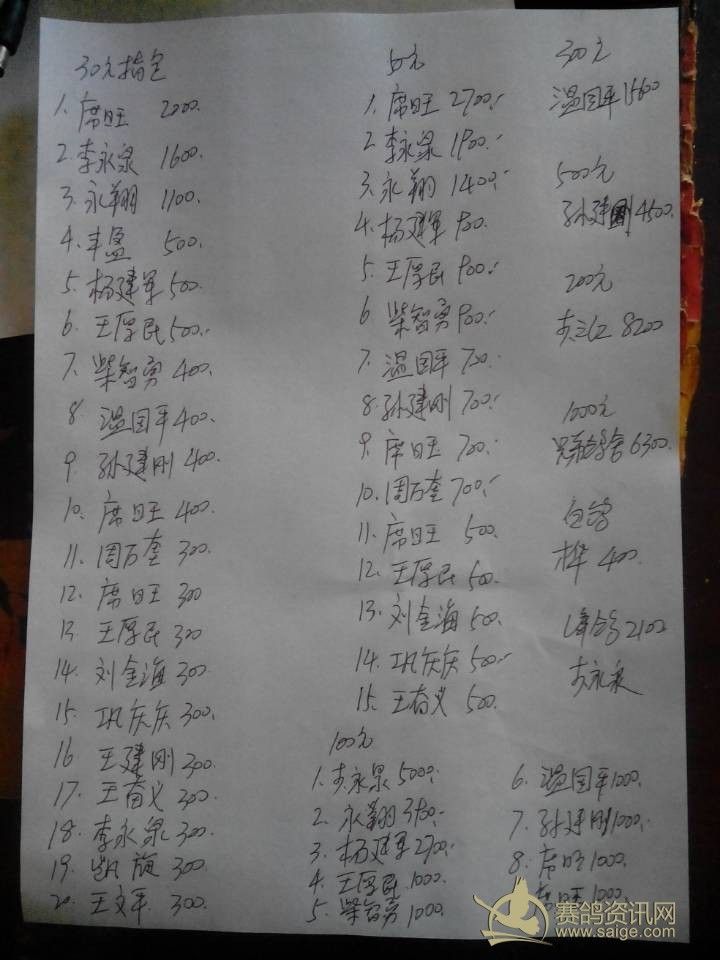 30元指定
1. 席旺 2000.
2. 李永泉 1600.
3. 永翔 1100.
4. 丰盈 500.
5. 杨建军 500.
6. 王厚民 500.
7. 柴智勇 400.
8. 温国平 400.
9. 孙建刚 400.
10. 席旺 400.
11. 周万奎 300.
12. 席旺 300
13 王厚民 300
14. 刘金海 300.
15. 巩庆庆 300.
16 王建刚 300
17. 王奋义 300.
18. 李永泉 300.
19. 凯旋 300
20 王文平 300.
50元
1. 席旺 2700.
2. 李永泉 1900.
3. 永翔 1400.
4. 杨建军 900.
5. 王厚民 900.
6 柴智勇 900.
7. 温国平 700.
8. 孙建刚 700.
9. 席旺 700.
10. 周万奎 700.
11. 席旺 500.
12. 王厚民 500.
13. 刘金海 500.
14. 巩庆庆 500.
15. 王奋义 500.
300元
温国平 15600
500元
孙建刚 4500.
200元
8200
1000元
6300.
400.
2100
李永泉
100元
1. 李永泉 5000.
2. 永翔
3. 杨建军 2700.
4. 王厚民 1000.
5. 柴智勇 1000.
6. 温国平 1000.
7. 孙建刚 1000.
8. 席旺 1000.
席旺 1000.
赛鸽资讯网
www.saige.com